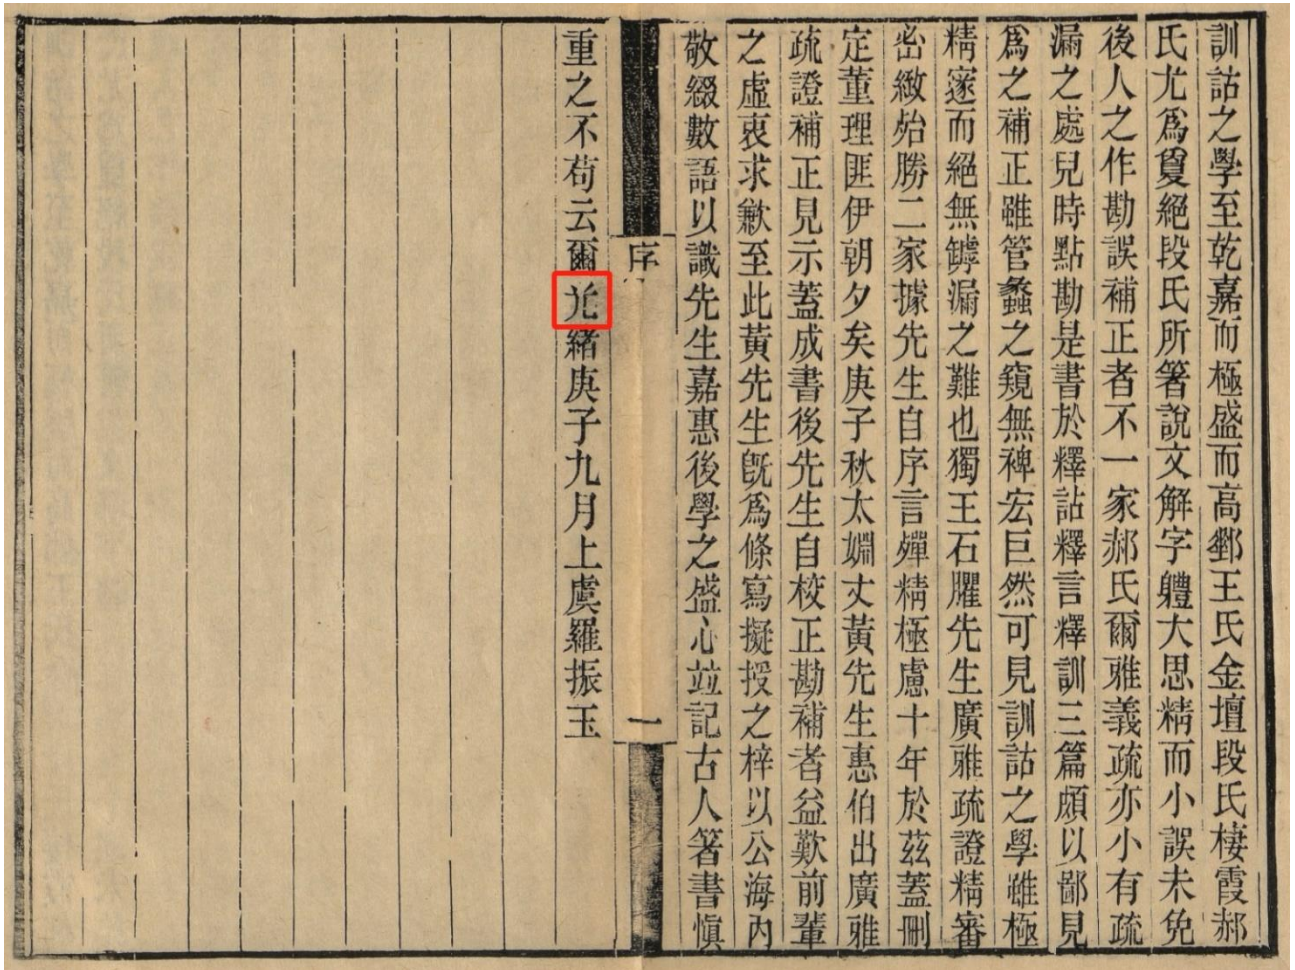 訓詁之學至乾嘉而極盛而高郵王氏金壇段氏棲霞郝
氏尤爲敻絕段氏所箸說文解字軆大思精而小誤未免
後人之作勘誤補正者不一家郝氏爾雅義疏亦小有疏
漏之處兒時點勘是書於釋詁釋言釋訓三篇頗以鄙見
爲之補正雖管蠡之窺無裨宏巨然可見訓詁之學雖極
精邃而絕無罅漏之難也獨王石臞先生廣雅疏證精審
密緻殆勝二家據先生自序言殫精極慮十年於茲蓋刪
定董理匪伊朝夕矣庚子秋太婣丈黃先生惠伯出廣雅
疏證補正見示蓋成書後先生自校正勘補者益歎前輩
之虛衷求歉至此黃先生旣爲條寫擬授之梓以公海內
敬綴數語以識先生嘉惠後學之盛心竝記古人箸書愼
重之不苟云爾光緒庚子九月上虞羅振玉
序
一